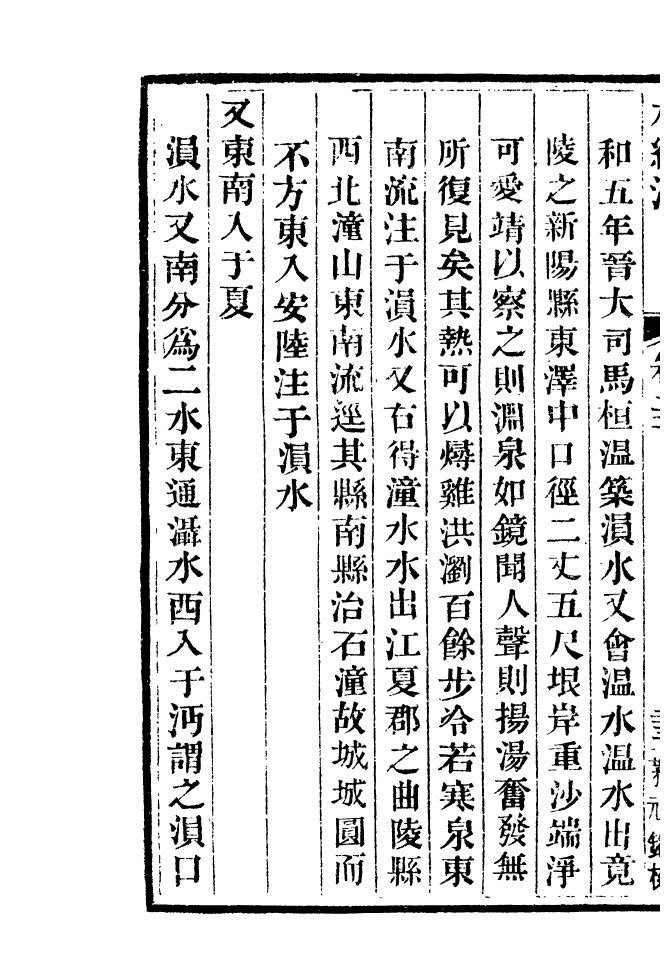 水經注
和五年晉大司馬桓温築溳水又會温水温水出竟
陵之新陽縣東澤中口徑二丈五尺垠岸重沙端淨
可愛靖以察之則淵泉如鏡聞人聲則揚湯奮發無
所復見矣其熱可以㷟雞洪瀏百餘步冷若寒泉東
南流注于溳水又右得潼水水出江夏郡之曲陵縣
西北潼山東南流逕其縣南縣治石潼故城城圓而
不方東入安陸注于溳水
又東南入于夏
溳水又南分爲二水東通灄水西入于沔謂之溳口